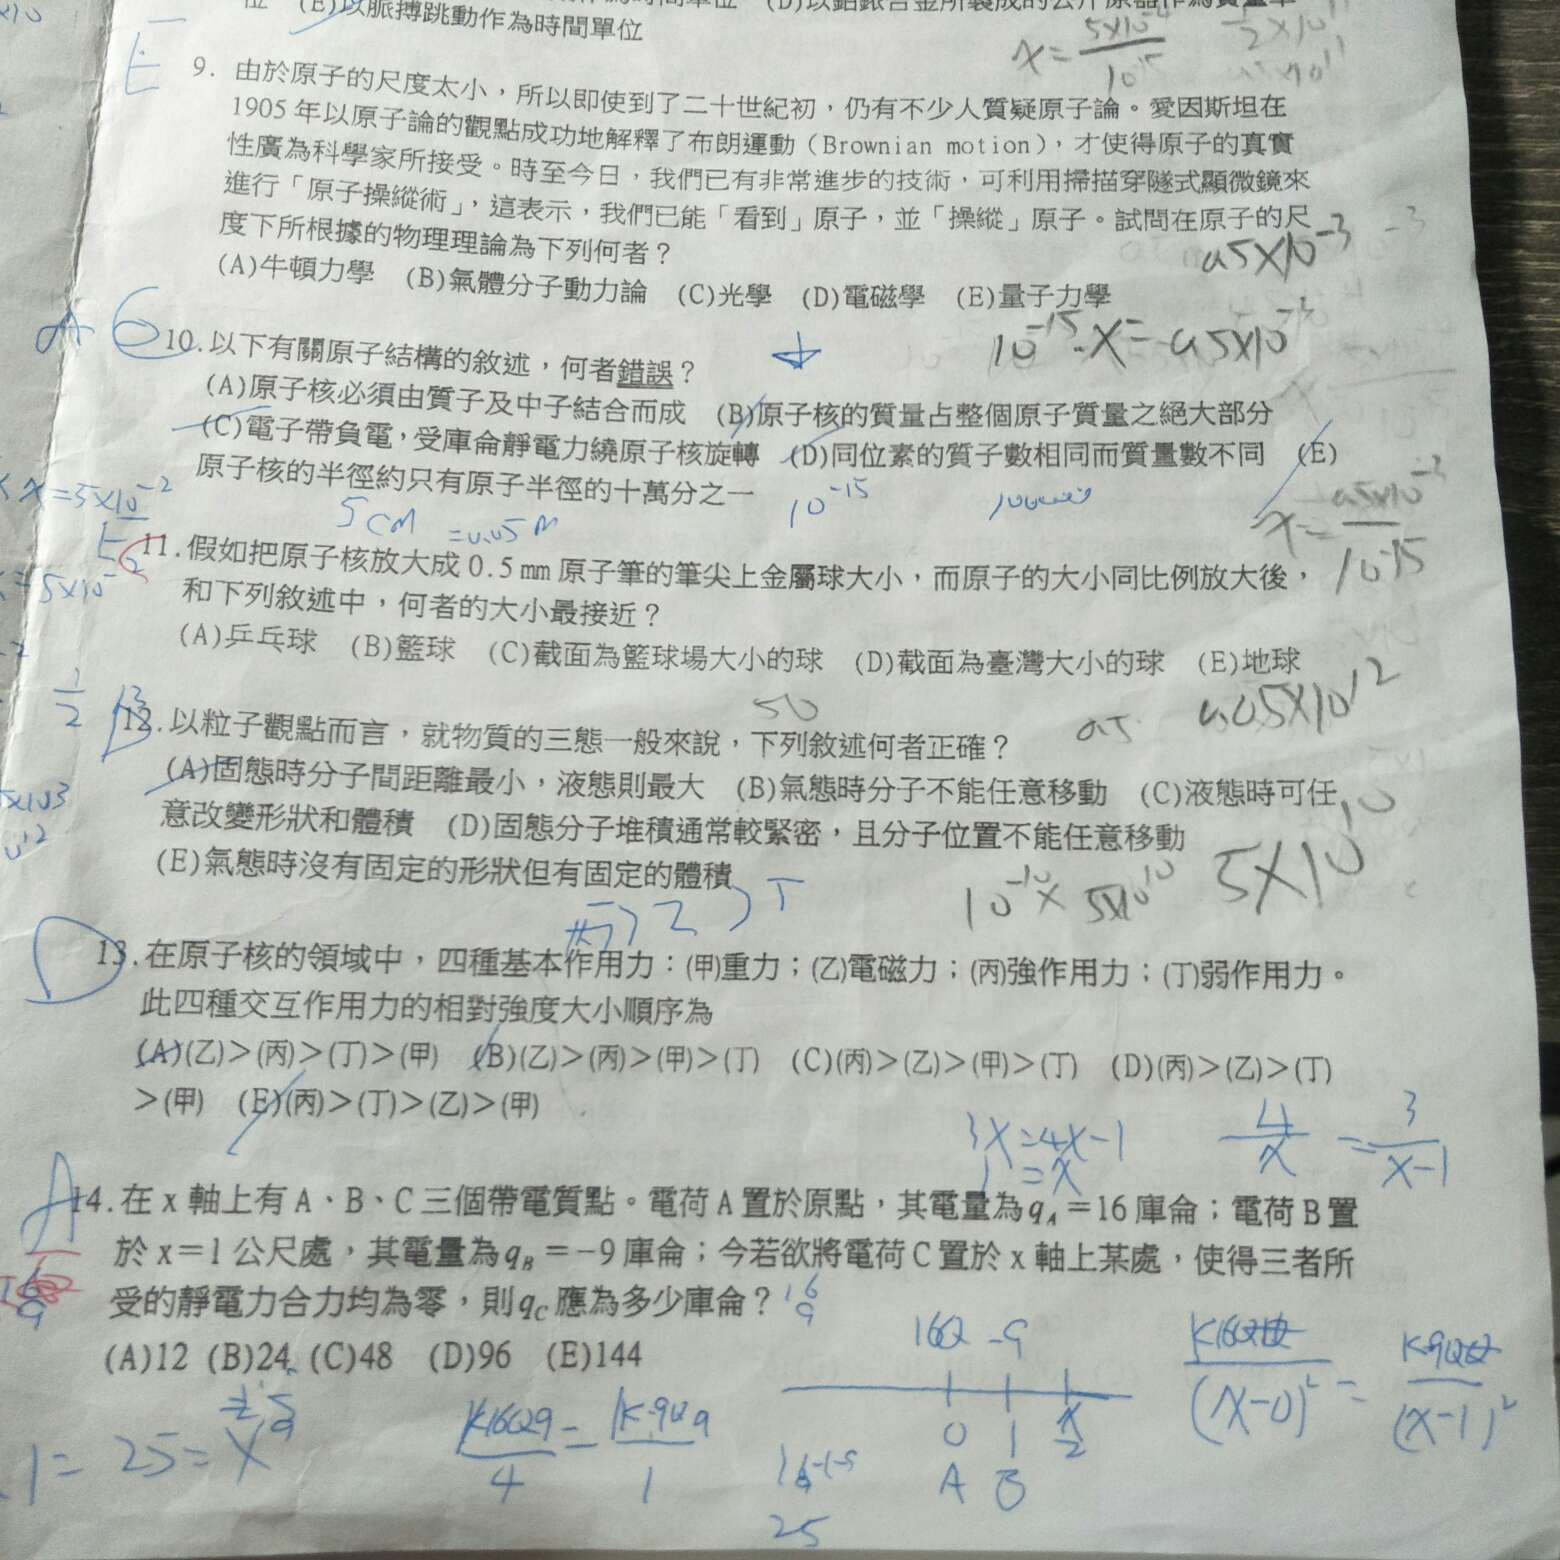 (E)以脈搏跳動作為時間單位
E
9. 由於原子的尺度太小，所以即使到了二十世紀初，仍有不少人質疑原子論。愛因斯坦在
1905年以原子論的觀點成功地解釋了布朗運動（Brownian motion），才使得原子的真實
性廣為科學家所接受。時至今日，我們已有非常進步的技術，可利用掃描穿隧式顯微鏡來
進行「原子操縱術」，這表示，我們已能「看到」原子，並「操縱」原子。試問在原子的尺
度下所根據的物理理論為下列何者？
(A)牛頓力學 (B)氣體分子動力論 (C)光學 (D)電磁學 (E)量子力學
A
10.以下有關原子結構的敘述，何者錯誤？
(A)原子核必須由質子及中子結合而成 (B)原子核的質量占整個原子質量之絕大部分
(C)電子帶負電，受庫侖靜電力繞原子核旋轉 (D)同位素的質子數相同而質量數不同 (E)
原子核的半徑約只有原子半徑的十萬分之一
5cm =0.05m
10⁻¹⁵
11.假如把原子核放大成0.5mm原子筆的筆尖上金屬球大小，而原子的大小同比例放大後，
和下列敘述中，何者的大小最接近？
(A)乒乓球 (B)籃球 (C)截面為籃球場大小的球 (D)截面為臺灣大小的球 (E)地球
50
12.以粒子觀點而言，就物質的三態一般來說，下列敘述何者正確？
(A)固態時分子間距離最小，液態則最大 (B)氣態時分子不能任意移動 (C)液態時可任
意改變形狀和體積 (D)固態分子堆積通常較緊密，且分子位置不能任意移動
(E)氣態時沒有固定的形狀但有固定的體積
10⁻¹⁰× 5×10¹⁰ 5×10¹⁰
D
13.在原子核的領域中，四種基本作用力：(甲)重力；(乙)電磁力；(丙)強作用力；(丁)弱作用力。
此四種交互作用力的相對強度大小順序為
(A)(乙)＞(丙)＞(丁)＞(甲) (B)(乙)＞(丙)＞(甲)＞(丁) (C)(丙)＞(乙)＞(甲)＞(丁) (D)(丙)＞(乙)＞(丁)
＞(甲) (E)(丙)＞(丁)＞(乙)＞(甲)
3x=4x-1 4/x = 3/x-1
1=x
A
14.在x軸上有A、B、C三個帶電質點。電荷A置於原點，其電量為qA＝16庫侖；電荷B置
於x＝1公尺處，其電量為qB＝−9庫侖；今若欲將電荷C置於x軸上某處，使得三者所
受的靜電力合力均為零，則qC應為多少庫侖？
(A)12 (B)24 (C)48 (D)96 (E)144
0 1
A B
25